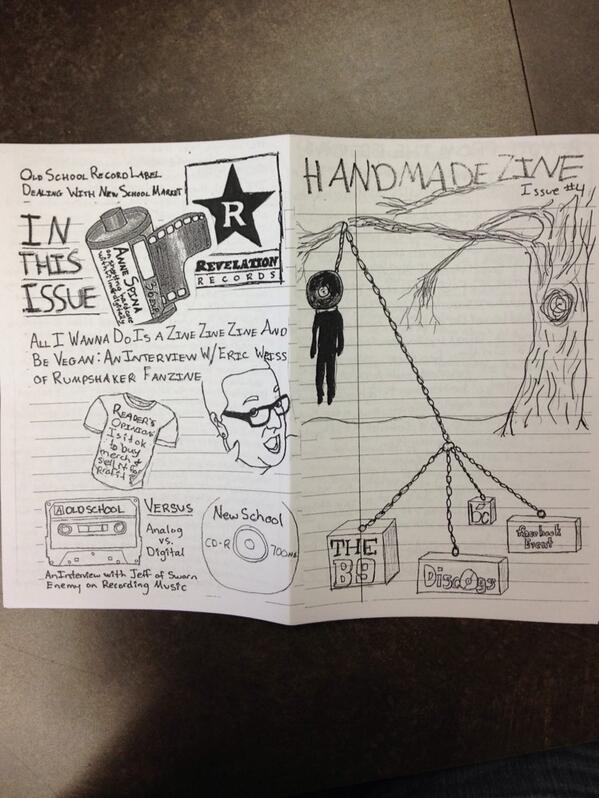 Old School Record Label
Dealing With New School Market
R
REVELATION
RECORDS
IN
THIS
ISSUE
ANNE SPINA
All I Wanna Do Is A Zine Zine Zine And
Be Vegan: An Interview W/ Eric Weiss
of Rumpshaker Fanzine
Reader's
Opinion:
Is it ok
to buy
merch +
sell it for
Profit?
A OLD SCHOOL
VERSUS
Analog
vs.
Digital
New School
CD-R
An Interview with Jeff of Sworn
Enemy on Recording Music
HANDMADE ZINE
Issue #4
THE
B9
Discogs
bc
facebook
Event